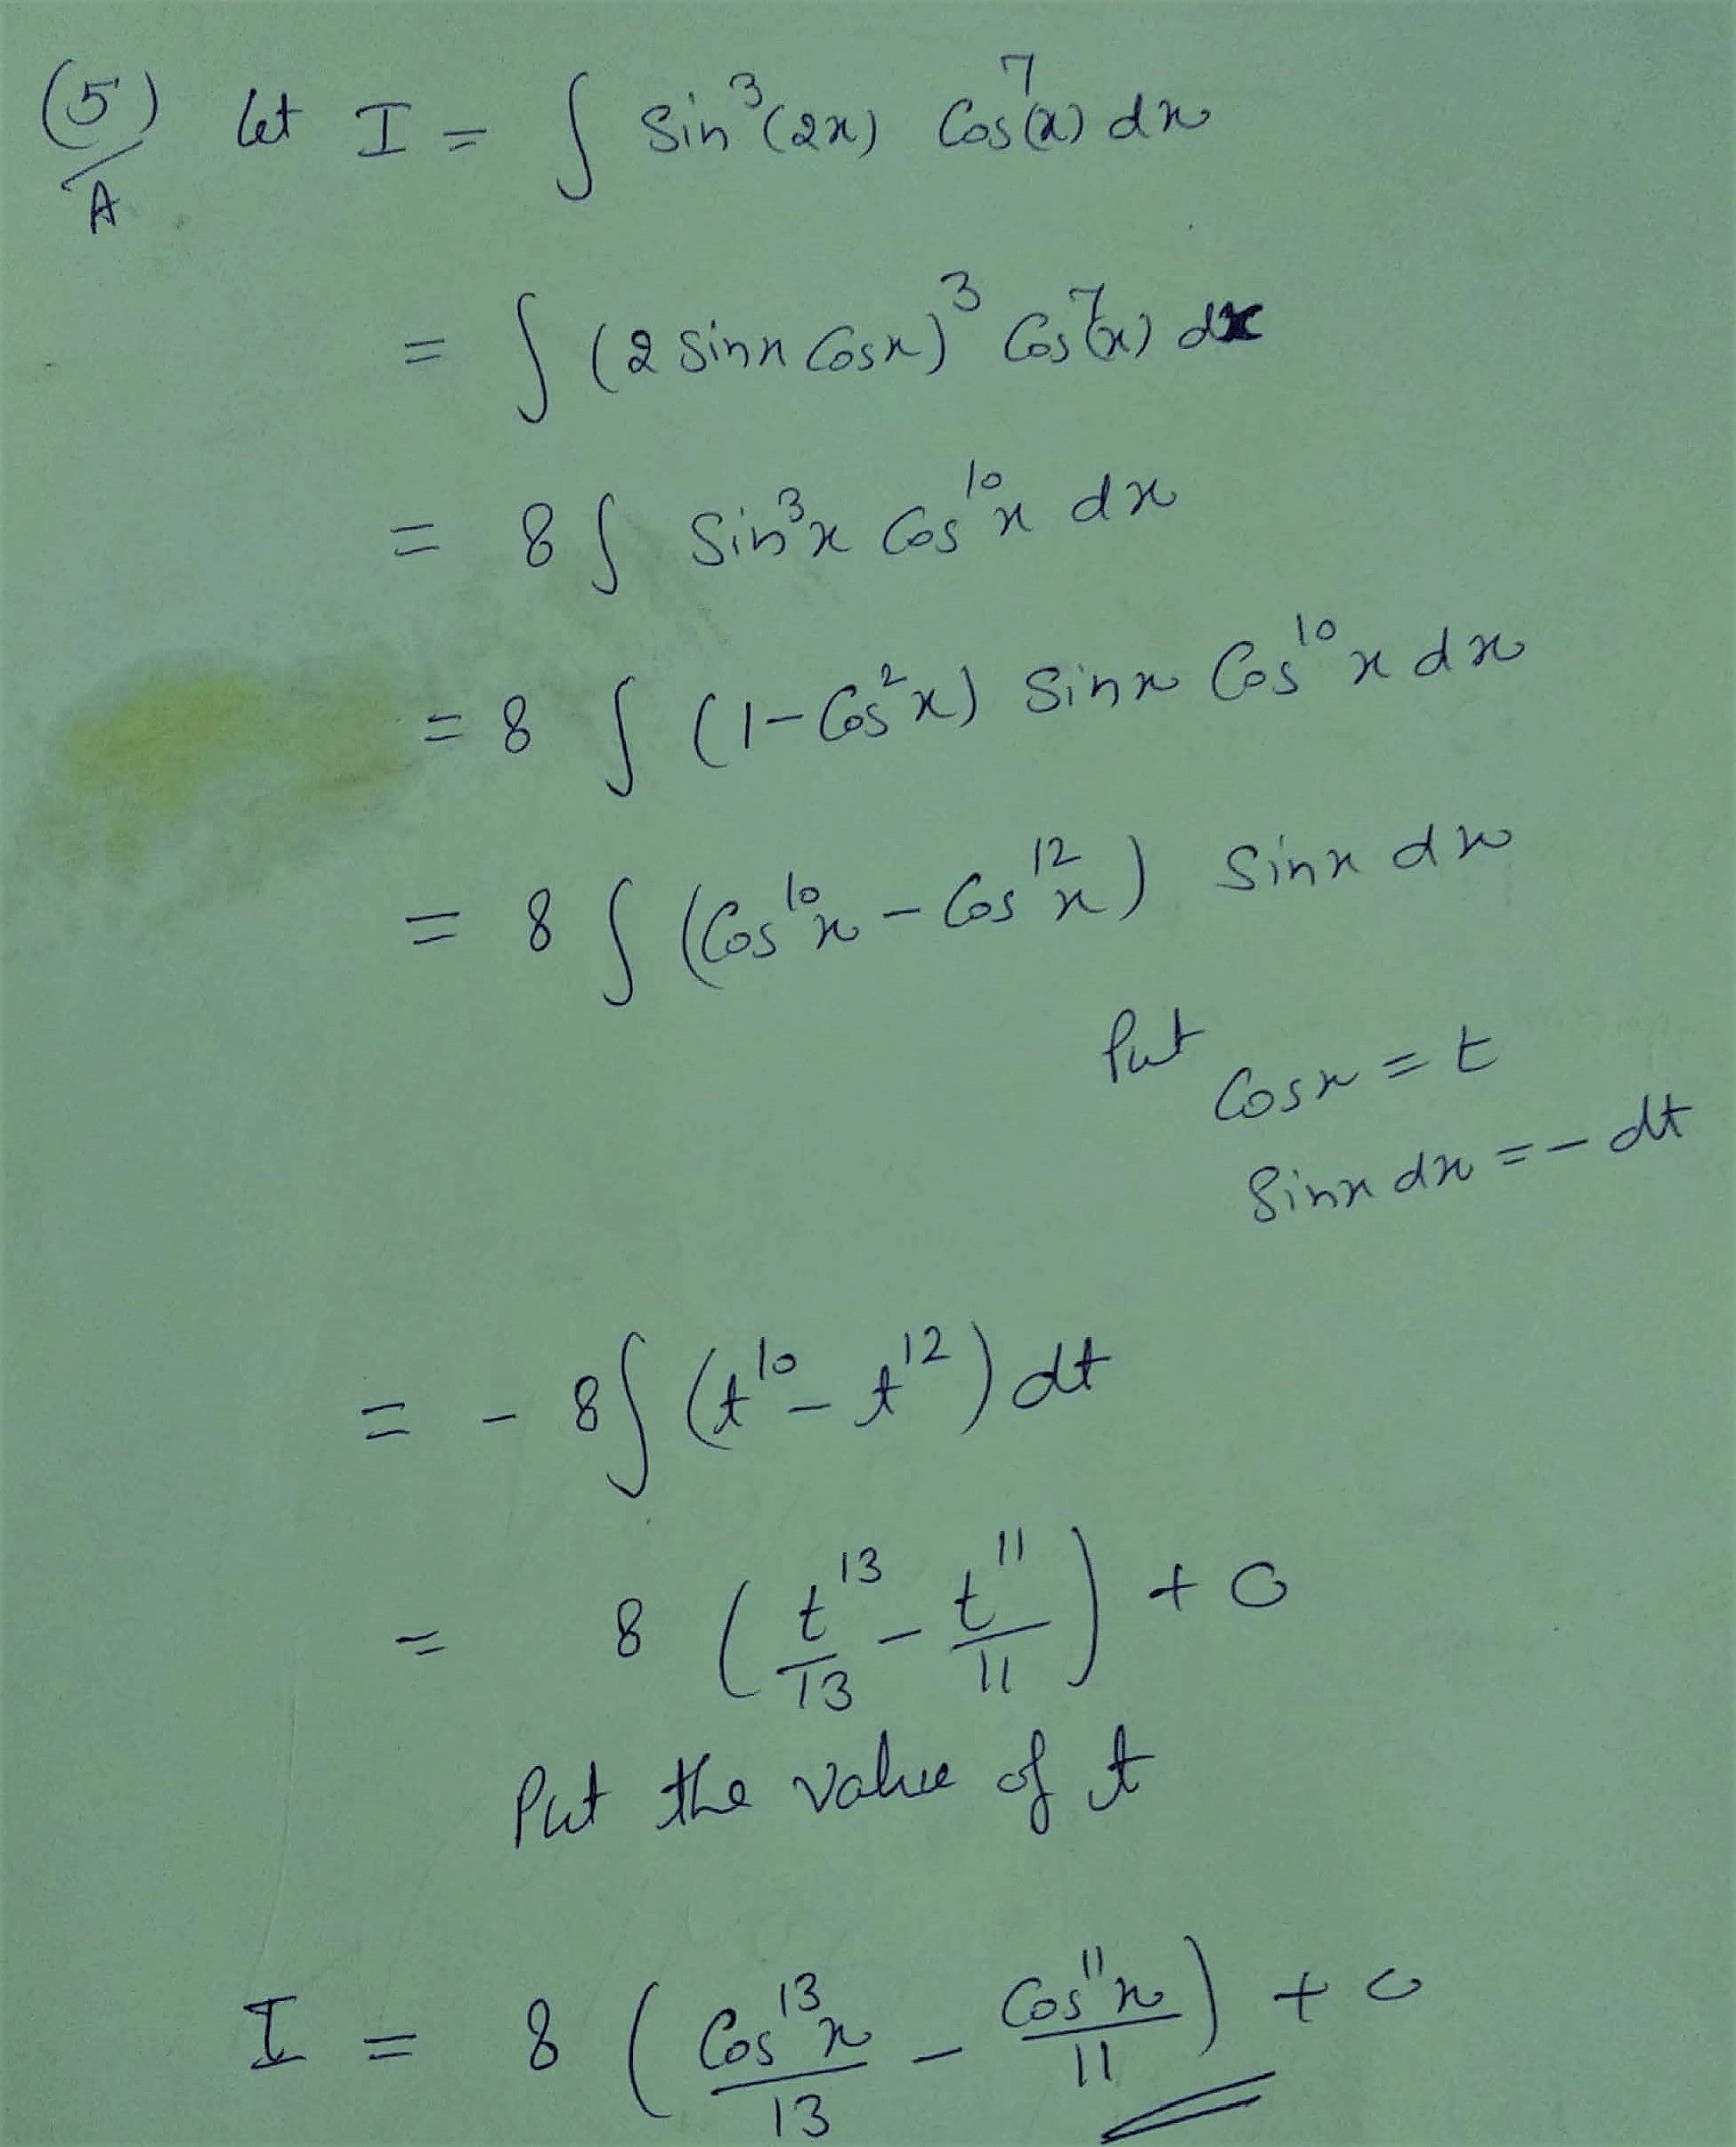 (5)/A let I = ∫ Sin³(2x) Cos⁷(x) dx
= ∫ (2 Sinx Cosx)³ Cos⁷(x) dx
= 8 ∫ Sin³x Cos¹⁰x dx
= 8 ∫ (1-Cos²x) Sinx Cos¹⁰x dx
= 8 ∫ (Cos¹⁰x - Cos¹²x) Sinx dx
Put Cosx = t
Sinx dx = - dt
= - 8 ∫ (t¹⁰ - t¹²) dt
= 8 (t¹³/13 - t¹¹/11) + C
Put the value of t
I = 8 (Cos¹³x/13 - Cos¹¹x/11) + C